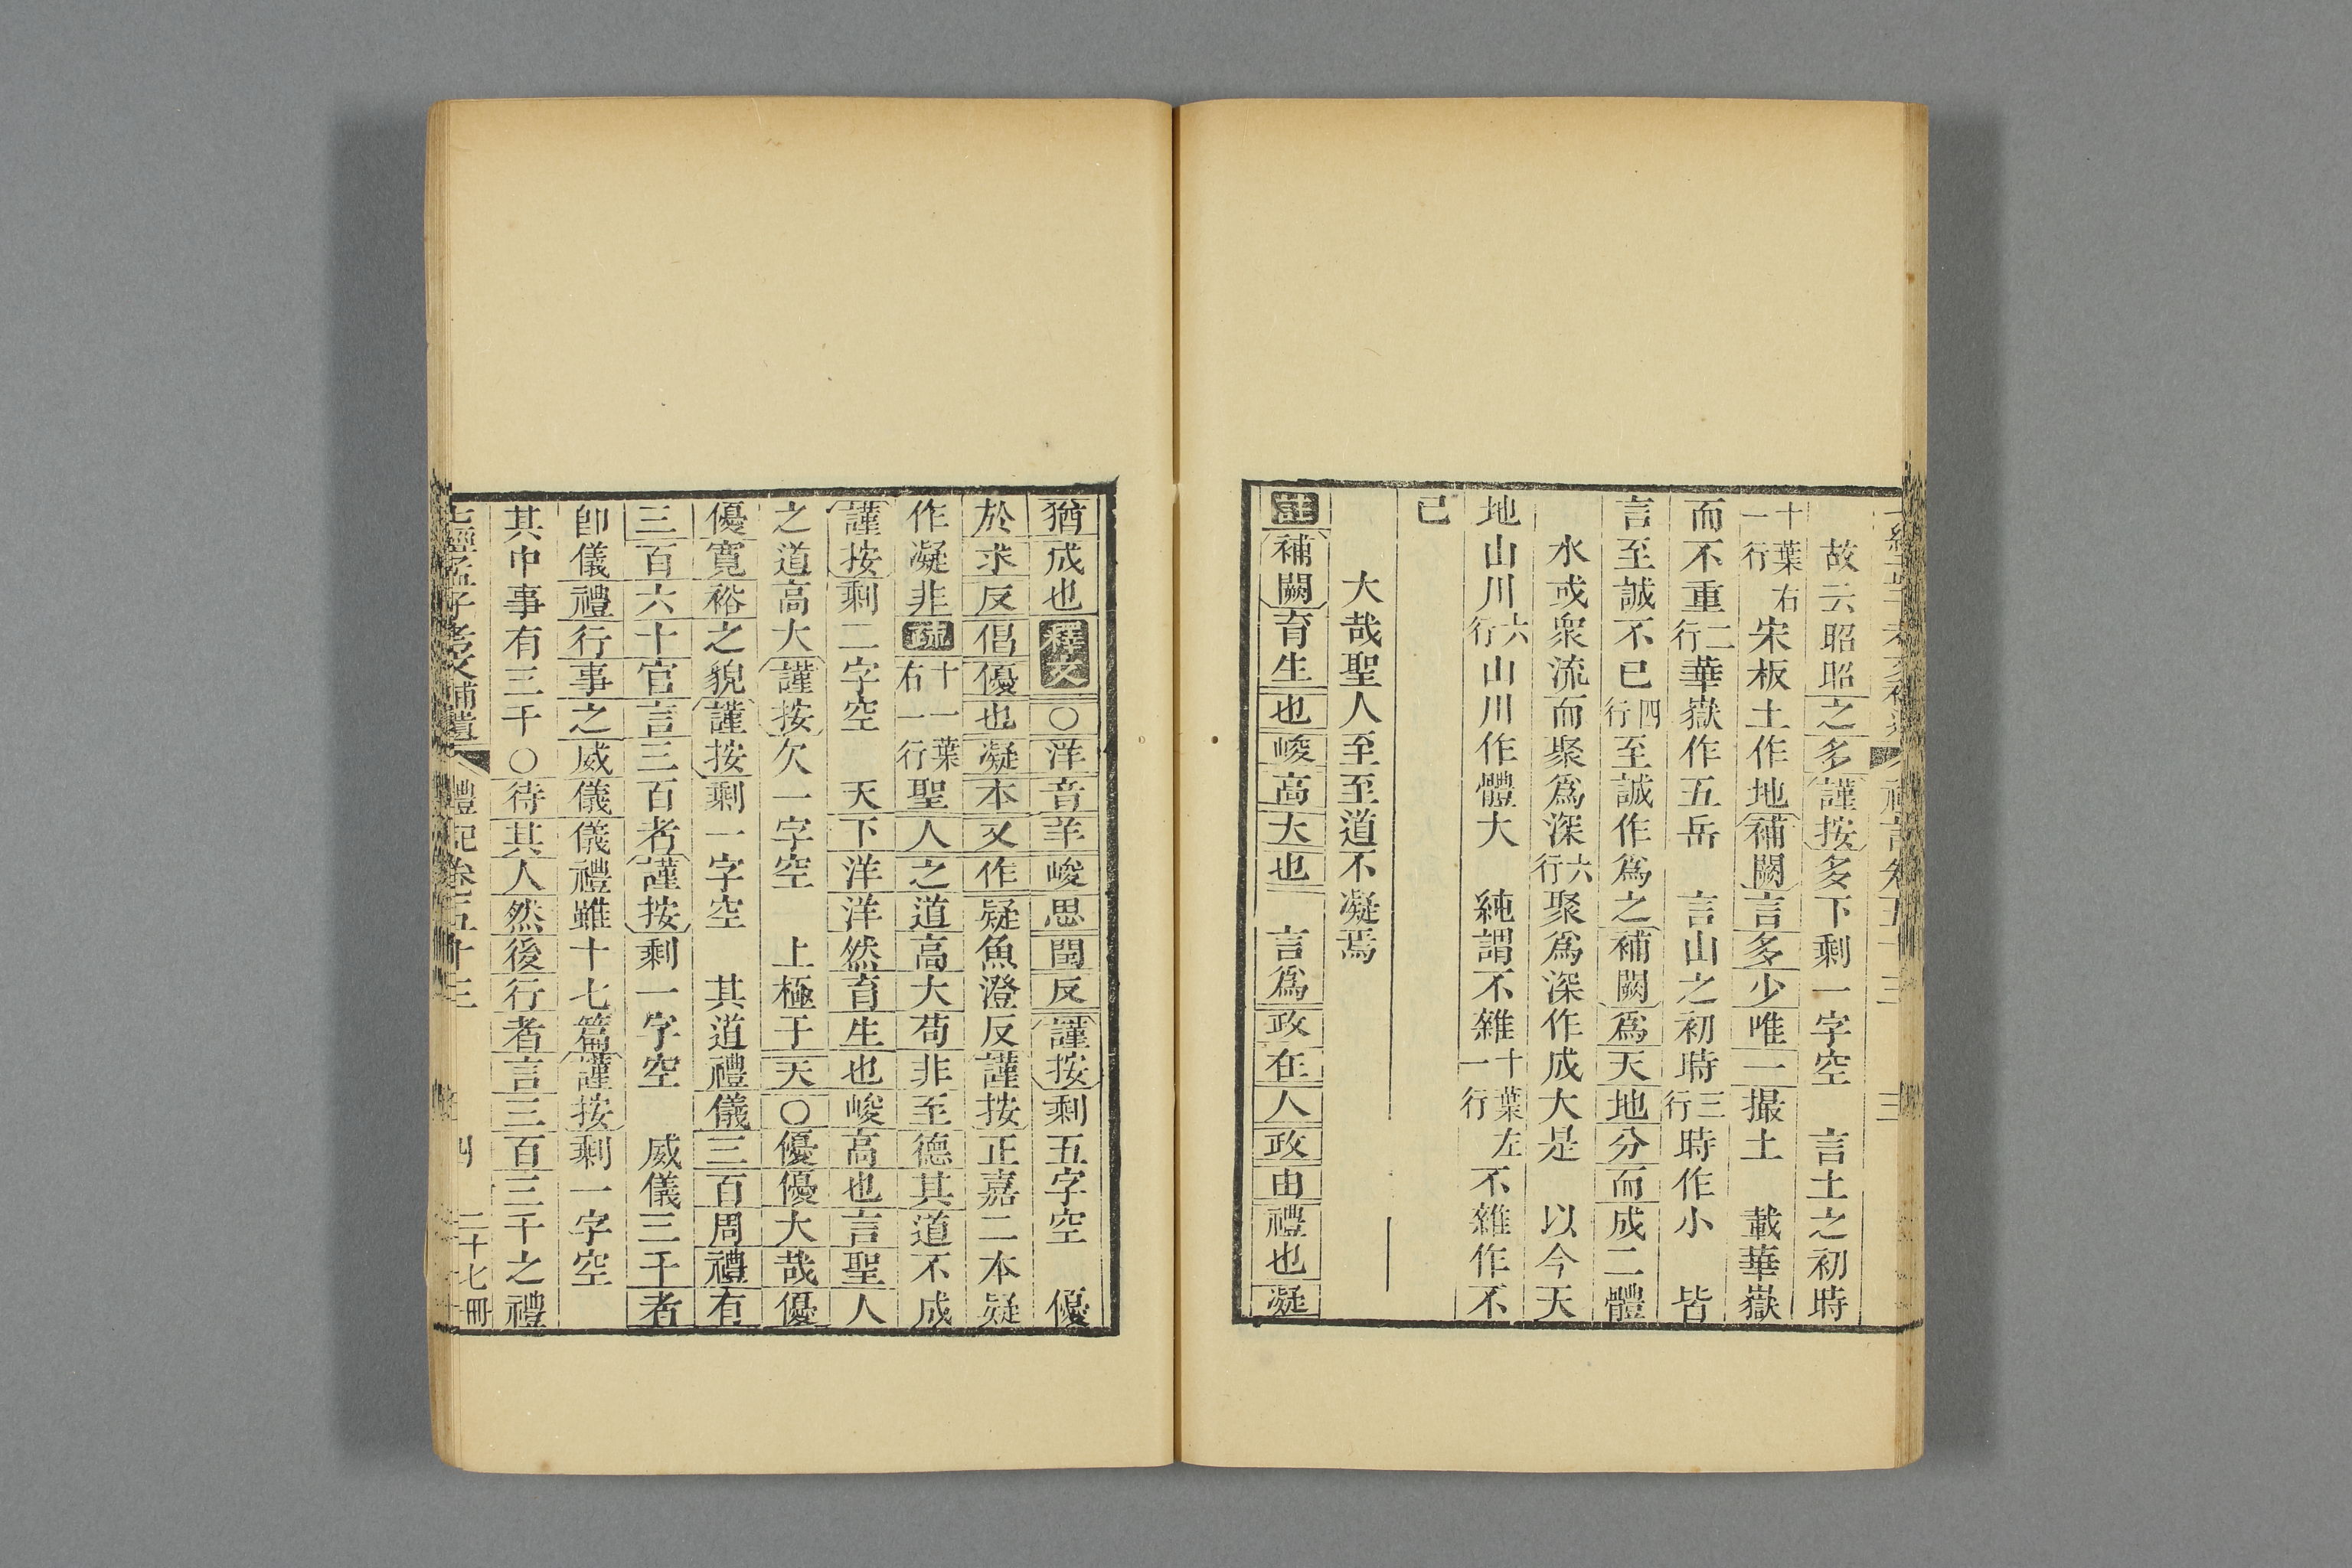 故云昭昭之多謹按多下剩一字空　言土之初時
十一葉右行宋板土作地補闕言多少唯一撮土　載華嶽
而不重二行華嶽作五岳　言山之初時三行時作小　皆
言至誠不已四行至誠作爲之補闕爲天地分而成二體
水或衆流而聚爲深六行聚爲深作成大是　以今天
地山川六行山川作體大　純謂不雜十一葉左行不雜作不
已
大哉聖人至至道不凝焉
註補闕育生也峻高大也　言爲政在人政由禮也凝
猶成也釋文○洋音羊峻思閏反謹按剩五字空　優
於求反倡優也凝本又作疑魚澄反謹按正嘉二本疑
作凝非疏十一葉右一行聖人之道高大苟非至德其道不成
謹按剩二字空　天下洋洋然育生也峻高也言聖人
之道高大謹按欠一字空　上極于天○優優大哉優
優寬裕之貌謹按剩一字空　其道禮儀三百周禮有
三百六十官言三百者謹按剩一字空　威儀三千者
卽儀禮行事之威儀儀禮雖十七篇謹按剩一字空
其中事有三千○待其人然後行者言三百三千之禮
七經孟子考文補遺　禮記卷五十三　四　二十七冊